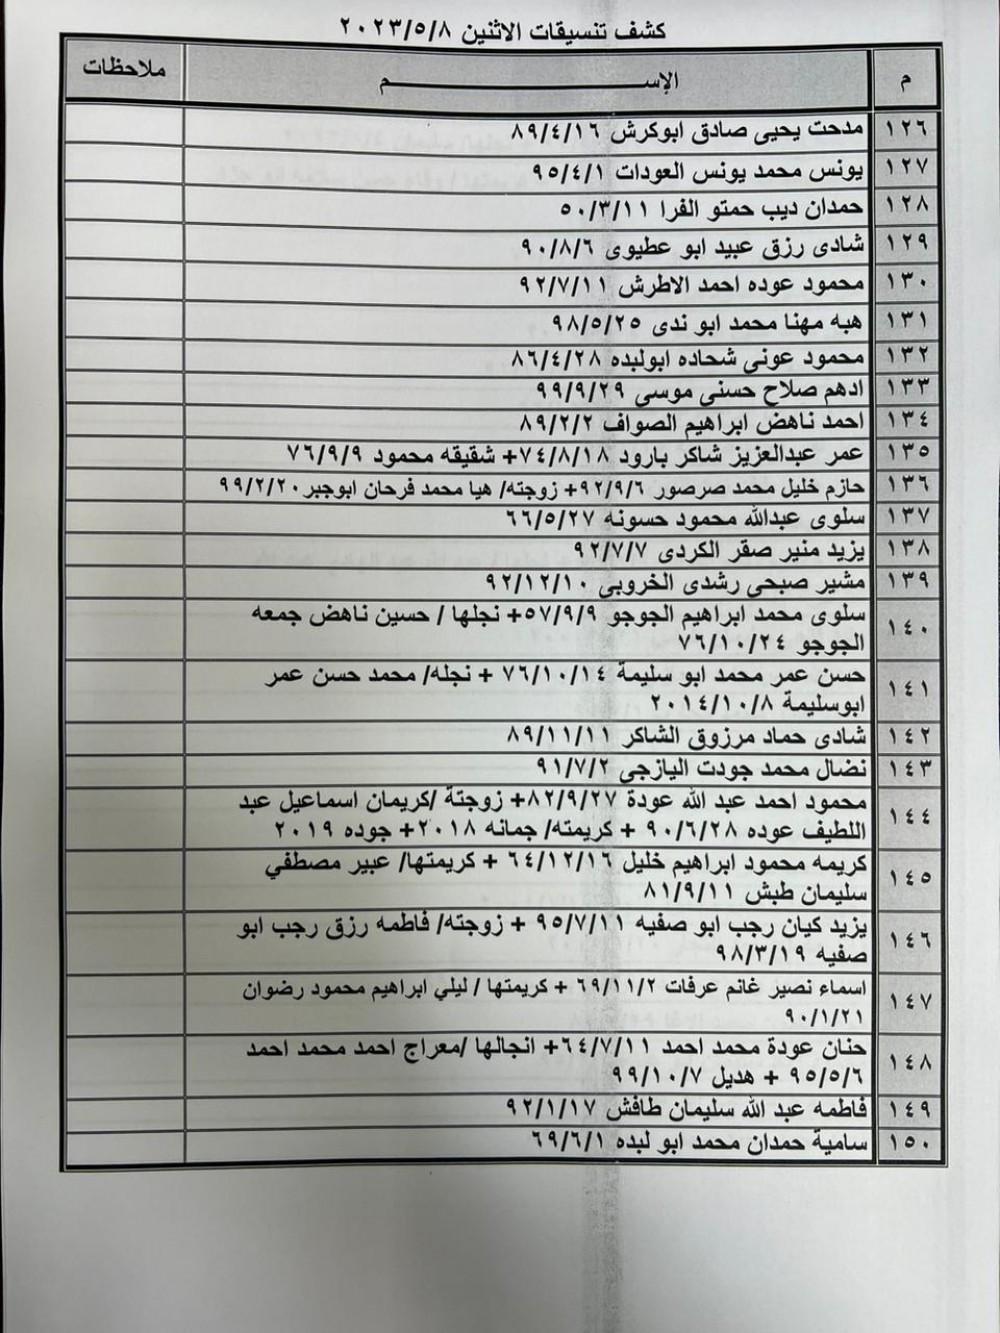 كشف تنسيقات الاثنين ٢٠٢٣/٥/٨
م الإســـــــــــم ملاحظات
١٢٦ مدحت يحيى صادق ابوكرش ٨٩/٤/١٦
١٢٧ يونس محمد يونس العودات ٩٥/٤/١
١٢٨ حمدان ديب حمتو الفرا ٥٠/٣/١١
١٢٩ شادى رزق عبيد ابو عطيوى ٩٠/٨/٦
١٣٠ محمود عوده احمد الاطرش ٩٢/٧/١١
١٣١ هبه مهنا محمد ابو ندى ٩٨/٥/٢٥
١٣٢ محمود عونى شحاده ابولبده ٨٦/٤/٢٨
١٣٣ ادهم صلاح حسنى موسى ٩٩/٩/٢٩
١٣٤ احمد ناهض ابراهيم الصواف ٨٩/٢/٢
١٣٥ عمر عبدالعزيز شاكر بارود ٧٤/٨/١٨+ شقيقه محمود ٧٦/٩/٩
١٣٦ حازم خليل محمد صرصور ٩٢/٩/٦+ زوجته/ هيا محمد فرحان ابوجبر ٩٩/٢/٢٠
١٣٧ سلوى عبدالله محمود حسونه ٦٦/٥/٢٧
١٣٨ يزيد منير صقر الكردى ٩٢/٧/٧
١٣٩ مشير صبحى رشدى الخروبى ٩٢/١٢/١٠
١٤٠ سلوى محمد ابراهيم الجوجو ٥٧/٩/٩+ نجلها / حسين ناهض جمعه
الجوجو ٧٦/١٠/٢٤
١٤١ حسن عمر محمد ابو سليمة ٧٦/١٠/١٤ + نجله/ محمد حسن عمر
ابوسليمة ٢٠١٤/١٠/٨
١٤٢ شادى حماد مرزوق الشاكر ٨٩/١١/١١
١٤٣ نضال محمد جودت اليازجى ٩١/٧/٢
١٤٤ محمود احمد عبد الله عودة ٨٢/٩/٢٧+ زوجتة /كريمان اسماعيل عبد
اللطيف عوده ٩٠/٦/٢٨ + كريمته/ جمانه ٢٠١٨+ جوده ٢٠١٩
١٤٥ كريمه محمود ابراهيم خليل ٦٤/١٢/١٦ + كريمتها/ عبير مصطفي
سليمان طبش ٨١/٩/١١
١٤٦ يزيد كيان رجب ابو صفيه ٩٥/٧/١١ + زوجته/ فاطمه رزق رجب ابو
صفيه ٩٨/٣/١٩
١٤٧ اسماء نصير غانم عرفات ٦٩/١١/٢ + كريمتها / ليلي ابراهيم محمود رضوان
٩٠/١/٢١
١٤٨ حنان عودة محمد احمد ٦٤/٧/١١+ انجالها /معراج احمد محمد احمد
٩٥/٥/٦ + هديل ٩٩/١٠/٧
١٤٩ فاطمه عبد الله سليمان طافش ٩٢/١/١٧
١٥٠ سامية حمدان محمد ابو لبده ٦٩/٦/١